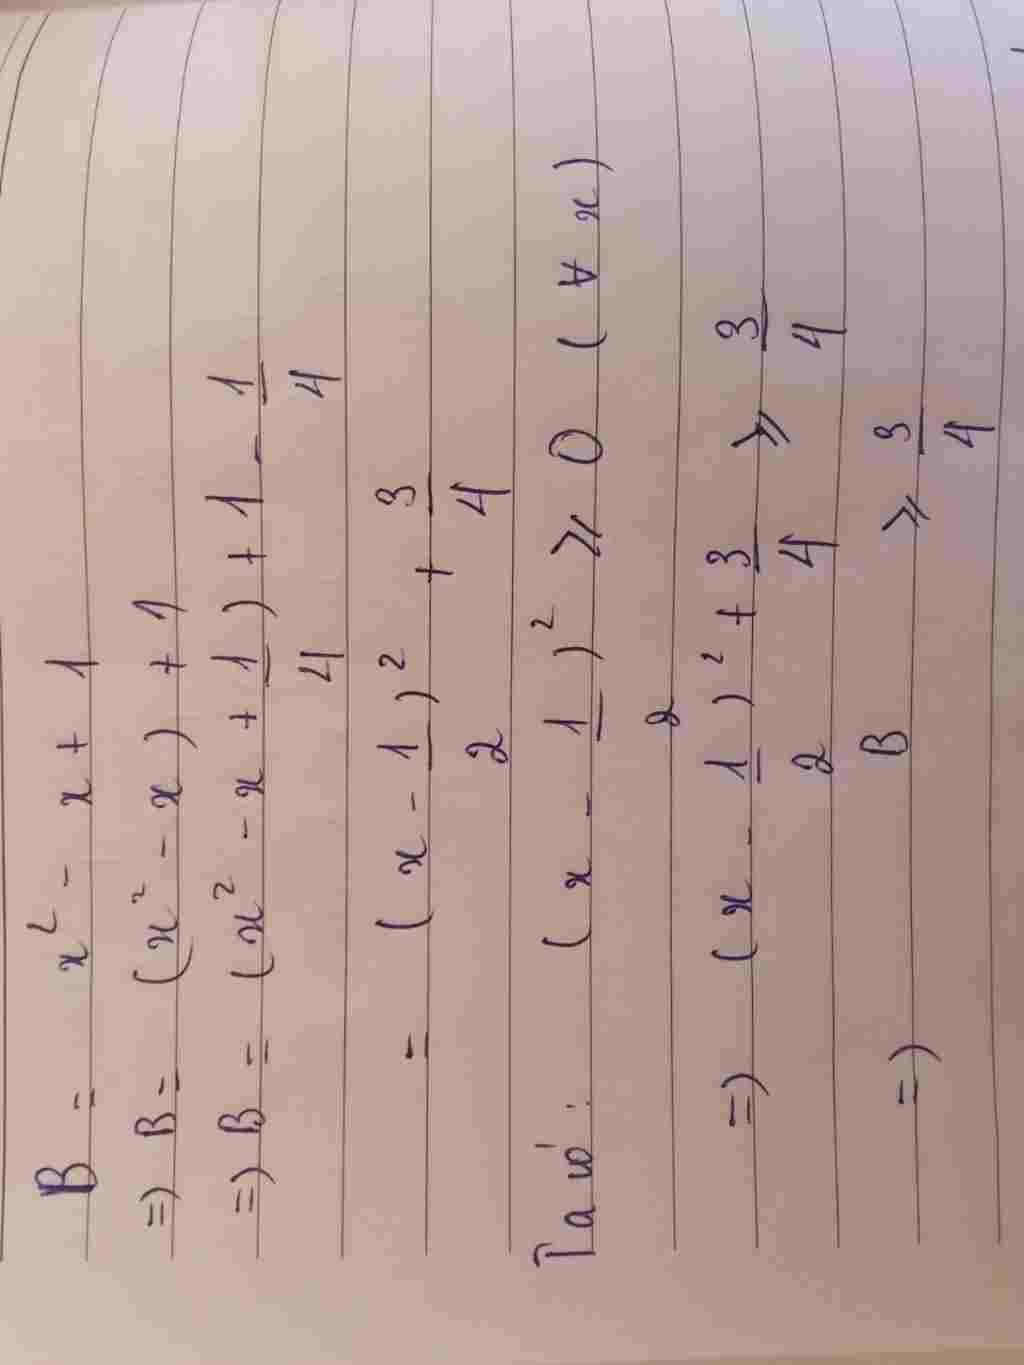 B = x² - x + 1
=) B = (x² - x) + 1
=) B = (x² - x + 1/4) + 1 - 1/4
= (x - 1/2)² + 3/4
Ta có: (x - 1/2)² ⩾ 0 (∀ x)
=) (x - 1/2)² + 3/4 ⩾ 3/4
=) B ⩾ 3/4